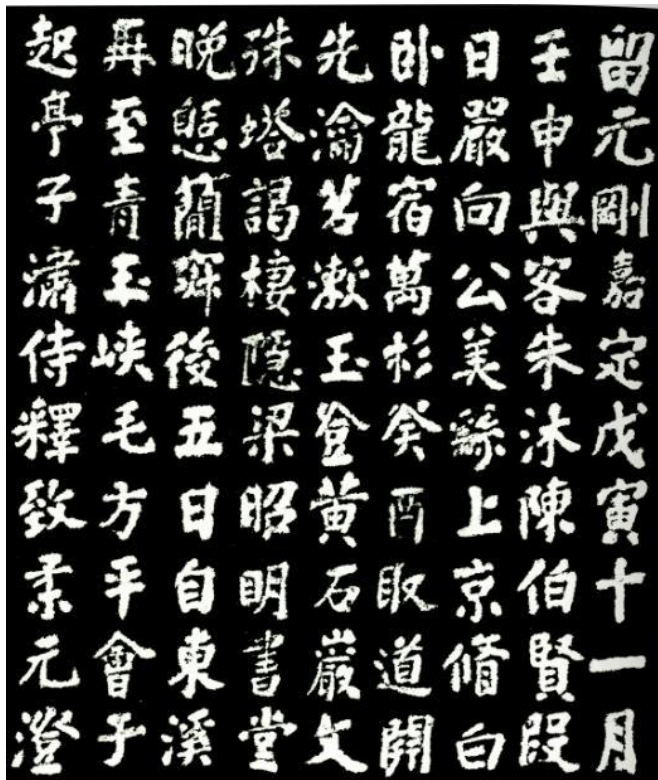 留元剛嘉定戊寅十一月
壬申與客朱沐陳伯賢段
日嚴向公美繇上京脩白
卧龍宿萬杉癸酉取道開
先瀹茗漱玉登黄石巖文
殊塔謁棲隱梁昭明書堂
晚憇蕳寂後五日自東溪
再至青玉峽毛方平會于
起亭子瀟侍釋致柔元澄